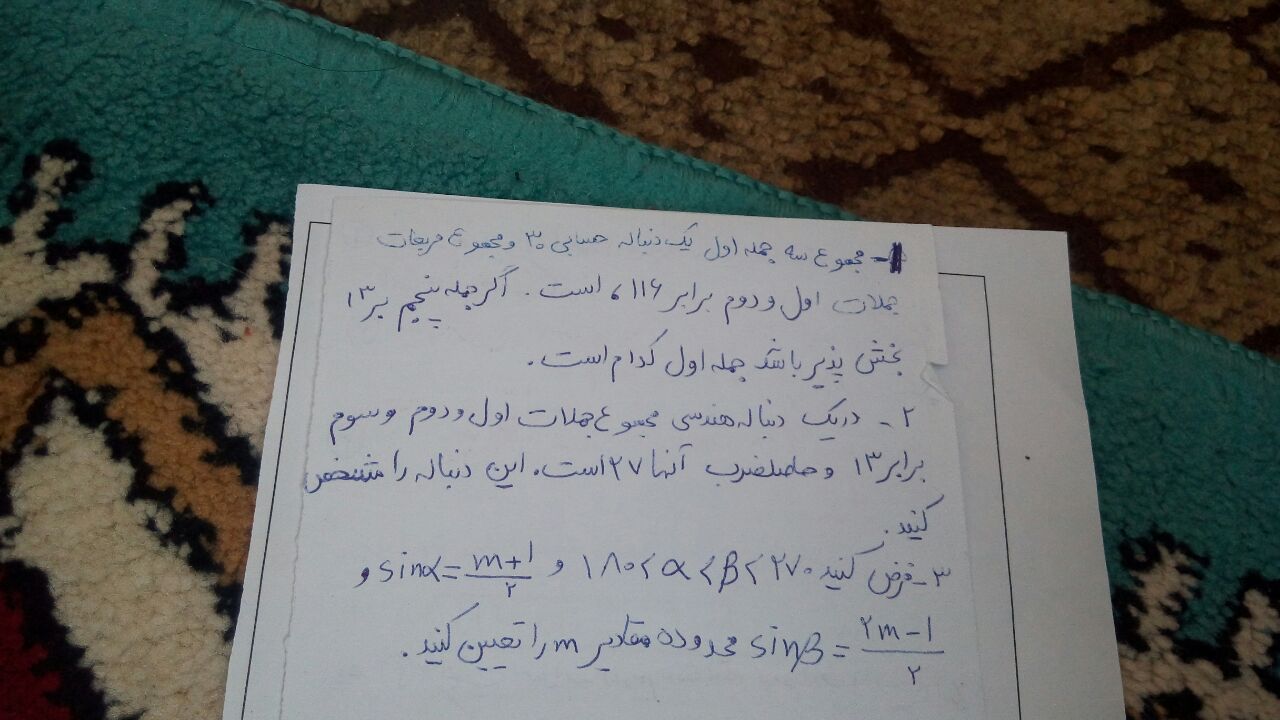 ۱- مجموع سه جمله اول یک دنباله حسابی ۳۰ و مجموع مربعات
جملات اول و دوم برابر ۱۱۶ است. اگر جمله پنجم بر ۱۳
بخش پذیر باشد جمله اول کدام است.
۲- در یک دنباله هندسی مجموع جملات اول و دوم و سوم
برابر ۱۳ و حاصلضرب آنها ۲۷ است. این دنباله را مشخص
کنید.
۳- فرض کنید ۱۸۰ < α < β < ۲۷۰ و sinα = (m+۱)/۲ و
sinβ = (۲m-۱)/۲ محدوده مقادیر m را تعیین کنید.